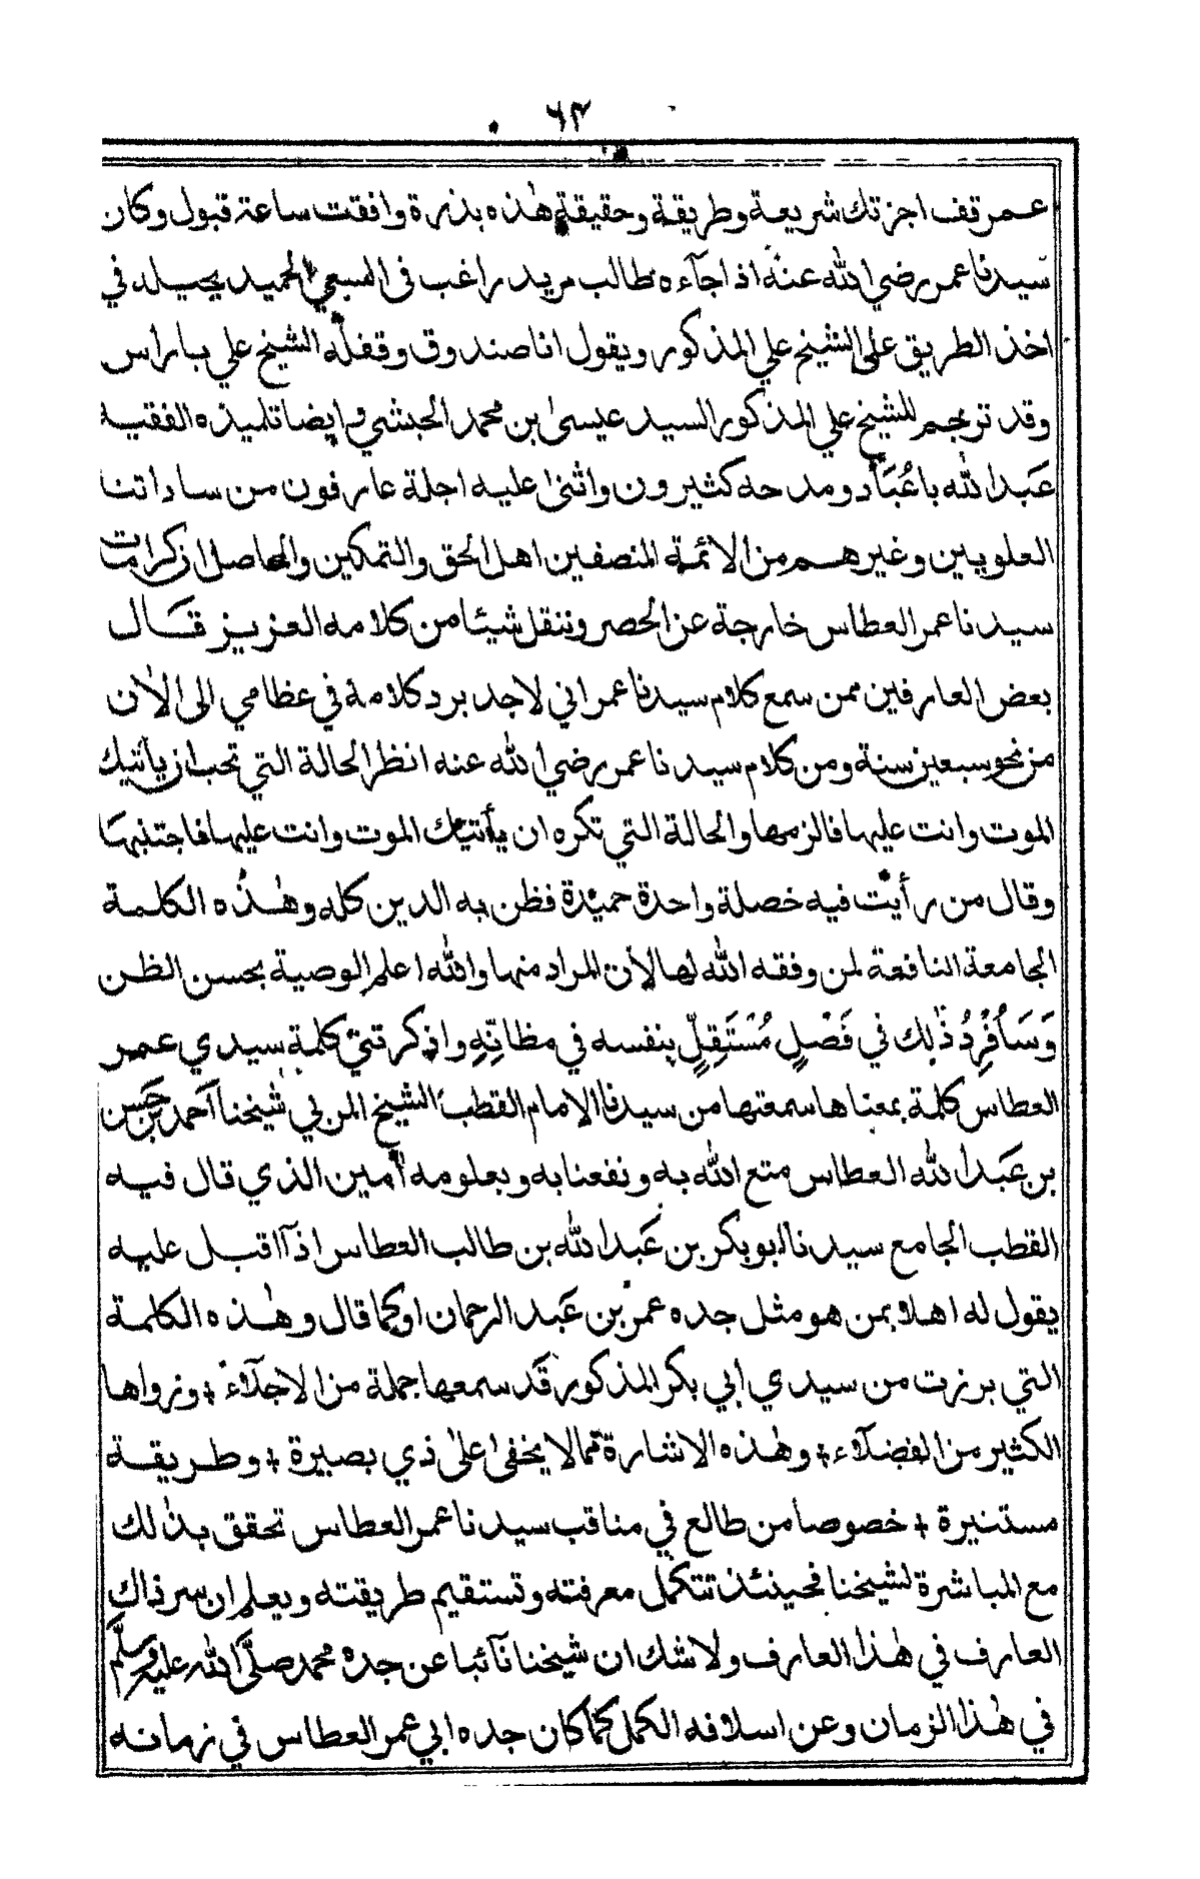 ٦٣
عمر قف اجزتك شريعة وطريقة وحقيقة هذه بذرة وافقت ساعة قبول وكان
سيدنا عمر رضي الله عنه اذا جآءه طالب مريد راغب في السعي الحميد يحيله في
اخذ الطريق على الشيخ علي المذكور ويقول انا صندوق وقفله الشيخ علي باراس
وقد ترجم للشيخ علي المذكور السيد عيسى بن محمد الحبشي وايضا تلميذه الفقيه
عَبد الله باعُبَاد ومدحه كثيرون واثنى عليه اجلة عارفون من ساداتنا
العلويين وغيرهم من الائمة المنصفين اهل الحق والتمكين والحاصل ان كرامات
سيدنا عمر العطاس خارجة عن الحصر وننقل شيئا من كلامه العزيز قَال
بعض العارفين ممن سمع كلام سيدنا عمر اني لاجد برد كلامه في عظامي الى الأن
من نحو سبعين سنة ومن كلام سيدنا عمر رضي الله عنه انظر الحالة التي تحب ان يأتيك
الموت وانت عليها فالزمها والحالة التي تكره ان يأتيك الموت وانت عليها فاجتنبها
وقال من رأيت فيه خصلة واحدة حميدة فظن به الدين كله وهٰذه الكلمة
الجامعة النافعة لمن وفقه الله لها لأن المراد منها والله اعلم الوصية بحسن الظن
وَسَأُفْرِدُ ذٰلِك في فَصْلٍ مُسْتَقِلٍّ بنفسه في مظانِّهِ واذكرتني كلمة سيدي عمر
العطاس كلمة بمعناها سمعتها من سيدنا الامام القطب الشيخ المربي شيخنا آحمد بن حَسن
بن عَبد الله العطاس متع الله به ونفعنا به وبعلومه اٰمين الذي قال فيه
القطب الجامع سيدنا ابوبكر بن عَبد الله بن طالب العطاس اذآ اقبل عليه
يقول له اهلا بمن هو مثل جده عمر بن عَبد الرحمان او كما قال وهٰذه الكلمة
التي برزت من سيدي ابي بكر المذكور قَد سمعها جملة من الاجلآء + ونرواها
الكثير من الفضلآء + وهٰذه الاشارة مما لا يخفى على ذي بصيرة + وطريقة
مستنيرة + خصوصاً من طالع في مناقب سيدنا عمر العطاس تحقق بذلك
مع المباشرة لشيخنا فحينئذ تتكمل معرفته وتستقيم طريقته ويعلم ان سر ذاك
العارف في هٰذا العارف ولا شك ان شيخنا نآئبا عن جده محمد صلَّى الله عليه وسلَّم
في هٰذا الزمان وعن اسلافه الكمل كما كان جده ابي عمر العطاس في زمانه